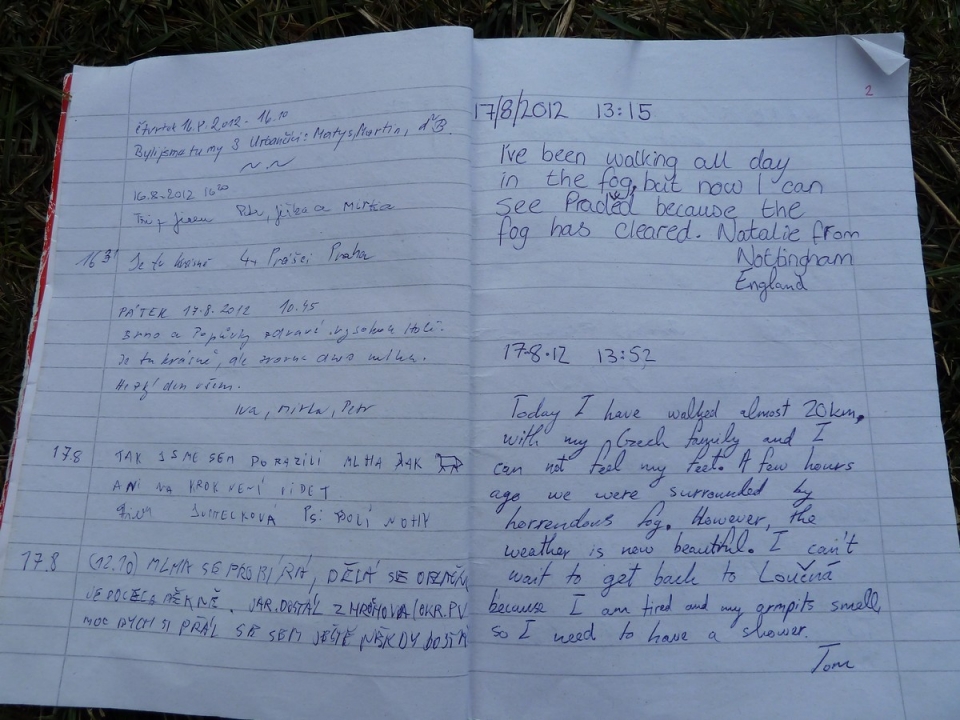 čtvrtek 16.8.2012 - 16.10
Byli jsme tu my 3 Matys, Martin,
16.8.2012 16 20
Petr, Jiřka a Mirka
Je tu krásně 4x Praha
PÁTEK 17.8.2012 10.45
Brno a Popůvky zdraví vysokou Holi.
Je tu krásně, ale zrovna dnes mlha.
Hezký den všem.
Iva, Mirka, Petr
17.8 TAK JSME SEM DORAZILI MLHA JAK
ANI NA KROK NENÍ VIDĚT
BOLÍ NOHY
17.8 (12.10) MLHA SE PROBÍRÁ, DĚLÁ SE
JE DOCELA PĚKNĚ. JAR. DOSTÁL Z (OKR. PV
MOC BYCH SI PŘÁL SE SEM JEŠTĚ NĚKDY
2
17/8/2012 13:15
I've been walking all day
in the fog, but now I can
see Praděd because the
fog has cleared. Natalie from
Nottingham
England
17.8.12 13:52
Today I have walked almost 20km,
with my Czech family and I
can not feel my feet. A few hours
ago we were surrounded by
horrendous fog. However, the
weather is now beautiful. I can't
wait to get back to Loučná
because I am tired and my armpits smell,
so I need to have a shower.
Tom